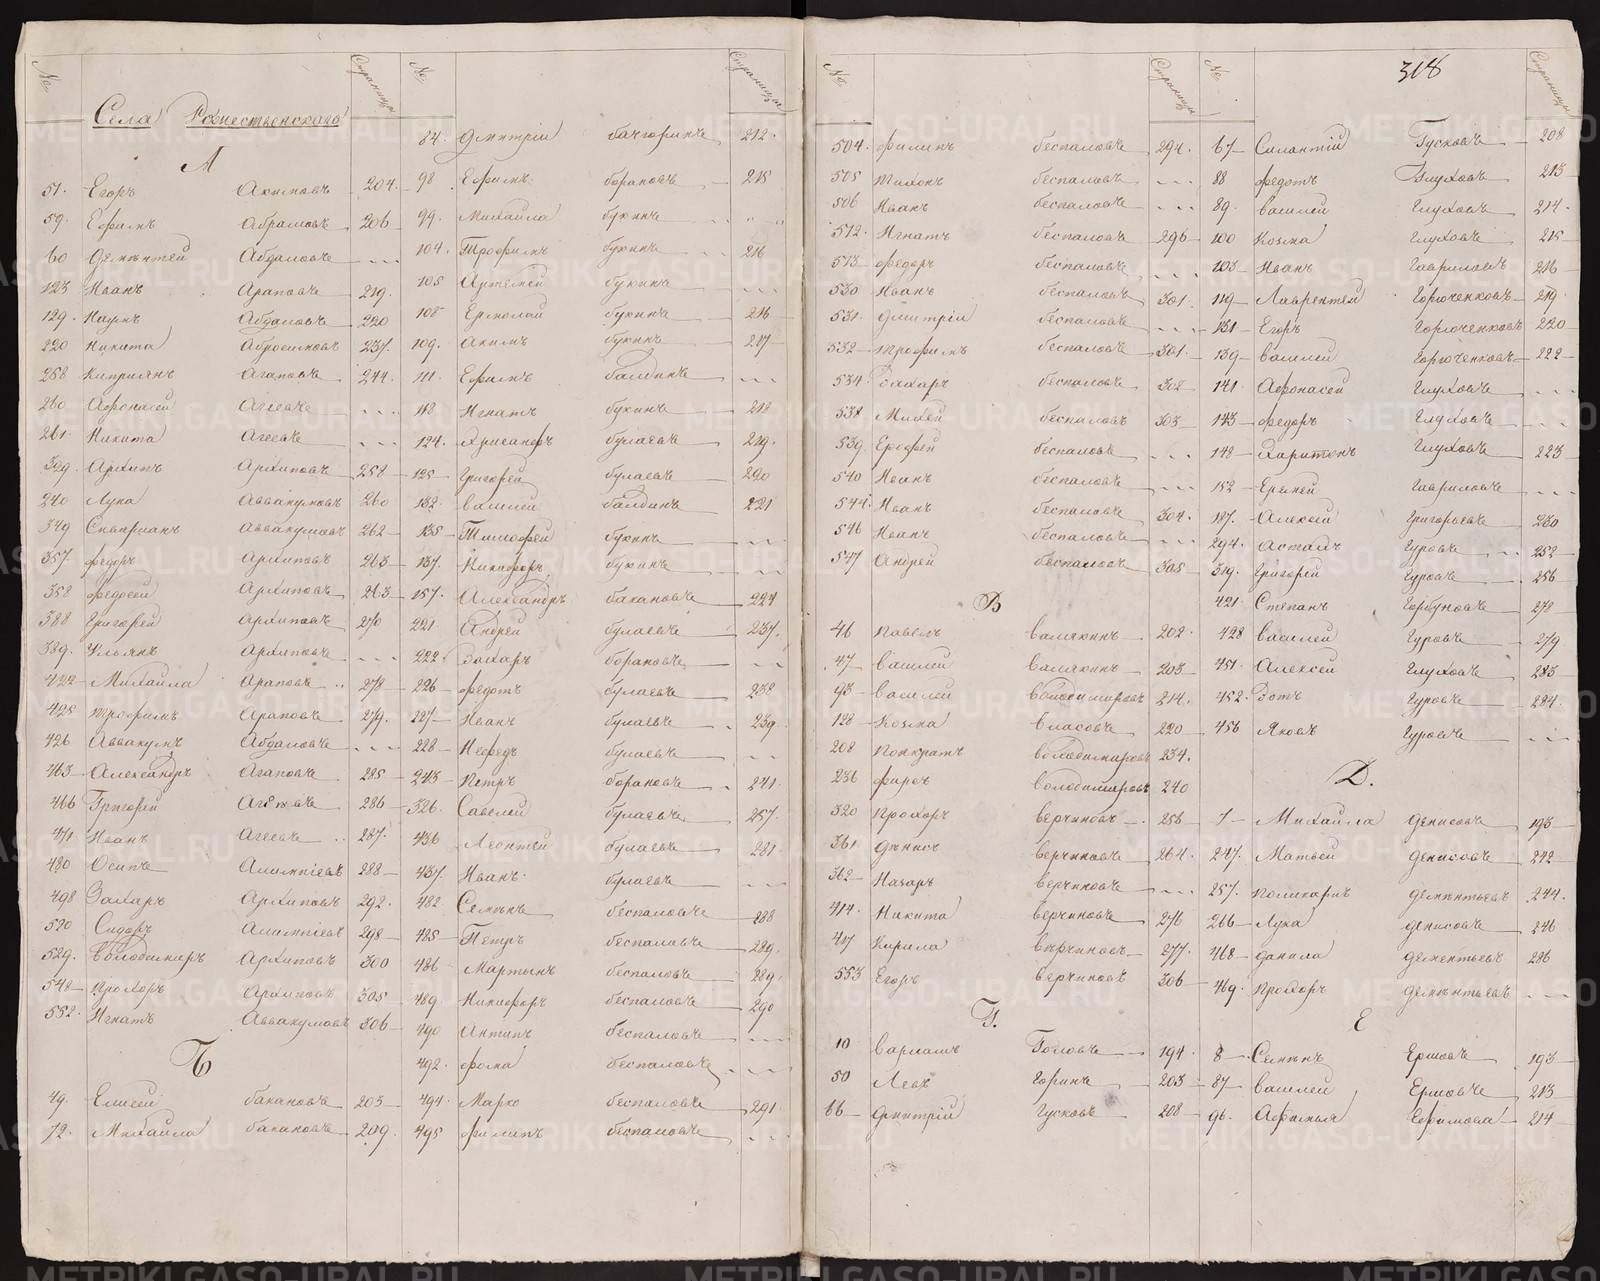 № Страницы
Села Рожественского
А
51. Егоръ Акимовъ 204.
59. Ефимъ Абрамовъ 206
60 Дементей Абдаловъ ---
123 Иванъ Араповъ 219.
129. Наумъ Абдаловъ 220
220 Никита Абросимовъ 237.
258 Киприянъ Агаповъ 244.
260 Афонасей Агеевъ ---
261. Никита Агеевъ ---
329. Архипъ Архиповъ 258
340 Лука Аввакумовъ 260
349 Аввакумовъ 262
357. Федоръ Архиповъ 263
358 Федосей Архиповъ 263
388 Григорей Архиповъ 270
389. Ульянъ Архиповъ ---
422 Михайла Араповъ 278
425 Трофимъ Араповъ 279.
426 Аввакумъ Абдаловъ ---
463 Александръ Агаповъ 285
466 Григорей Агеевъ 286
471 Иванъ Агеевъ 287.
480 Осипъ Алимпіевъ 288
498 Захаръ Архиповъ 292.
520 Сидоръ Алимпіевъ 298
529. Володимиръ Архиповъ 300
548 Прохоръ Архиповъ 305
552. Игнатъ Аввакумовъ 306
Б
49. Елисей бакановъ 203
72. Михайла бакановъ 209.
№ Страницы
84. Дмитрій 212.
98 Ефимъ борановъ 215
99. Михайла букинъ " "
104. Трофимъ букинъ 216
105 Артемей букинъ ---
108 Ермолай букинъ 216
109. Акимъ букинъ 217
111. Ефимъ балдинъ ---
118 Игнатъ букинъ 218
124. Хрисанфъ булаевъ 219.
125 Григорей булаевъ 220
132. Василей балдинъ 221
135 Тимофей букинъ ---
137. Никифоръ букинъ ---
157. Александръ бакановъ 224
221. Андрей булаевъ 237.
222. Захаръ борановъ ---
226 Федотъ булаевъ 238
227 Иванъ булаевъ 239.
228 Нефедъ булаевъ ---
243 Петръ борановъ 241
326. Савелей булаевъ 257.
436 Леонтей булаевъ 281
437. Иванъ булаевъ ---
482 Семенъ беспаловъ 288
485 Петръ беспаловъ 289.
486 Мартынъ беспаловъ 289.
489. Никифоръ беспаловъ 290
490 Антипъ беспаловъ ---
492. Фома беспаловъ ---
494. Марко беспаловъ 291
495 Филипъ беспаловъ ---
№ Страницы
504. Филипъ беспаловъ 294.
505 Тихонъ беспаловъ ---
506 Иванъ беспаловъ ---
512. Игнатъ беспаловъ 296
513 Федоръ беспаловъ ---
530 Иванъ беспаловъ 301.
531. Дмитрій беспаловъ ---
532 Трофимъ беспаловъ 301.
534. Захаръ беспаловъ 302
538 Михей беспаловъ 303
539. Ерофей беспаловъ ---
540 Иванъ беспаловъ ---
544. Иванъ беспаловъ 304.
546 Иванъ беспаловъ ---
547 Андрей беспаловъ 305
В
46 Павелъ валякинъ 202.
47 Василей Валякинъ 203
93 Василей Володимировъ 214.
128 Козма Власовъ 220
208 Понкратъ володимировъ 234.
236 Фирсъ володимировъ 240
320 Прохоръ верчиновъ 256
361 Денисъ верчиновъ 264.
362 Назаръ верчиновъ ---
414. Никита верчиновъ 276
417 Кирила верчиновъ 277.
553 Егоръ верчиновъ 306
Г.
10 Варламъ Головъ 194.
50 Левъ Горинъ 203
66 Дмитрій Гусковъ 208
№ 318 Страницы
67 Силантій Гусковъ 208
88 Федотъ Глуховъ 213
89. Василей Глуховъ 214.
100 Козма Глуховъ 215
103 Иванъ Гавриловъ 216
119 Лаврентей Горюченковъ 219.
131 Егоръ Горюченковъ 220
139 Василей Горюченковъ 222
141. Афонасей Глуховъ ---
143 Федоръ Глуховъ ---
148 Харитонъ Глуховъ 223
152 Еремей Гавриловъ ---
187. Алексей Григорьевъ 230
294. Астахъ Гуровъ 252
319. Григорей Гуровъ 256
421. Степанъ Горбуновъ 278
428 Василей Гуровъ 279
451. Алексей Глуховъ 283
452. Зотъ Гуровъ 284.
456 Яковъ Гуровъ ---
Д.
7 Михайла Денисовъ 193
247. Матвей Денисовъ 242
257. Поликарпъ Дементьевъ 244.
266 Лука Денисовъ 246
468 Данила Дементьевъ 286
469. Прохоръ Дементьевъ ---
Е
8 Семенъ Ершовъ 193
87 Василей Ершовъ 213
96. Афимья Ефимова 214
METRIKI.GASO-URAL.RU